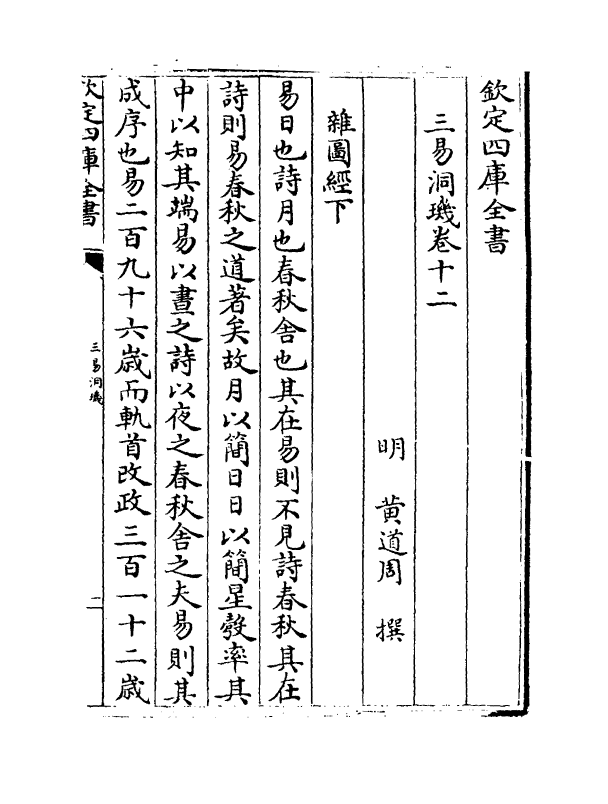 欽定四庫全書
三易洞璣卷十二
明　黄道周　撰
雜圖經下
易日也詩月也春秋舎也其在易則不見詩春秋其在
詩則易春秋之道著矣故月以簡日日以簡星彀率其
中以知其端易以晝之詩以夜之春秋舎之夫易則其
成序也易二百九十六歳而軌首改政三百一十二歳
欽定四庫全書
三易洞璣